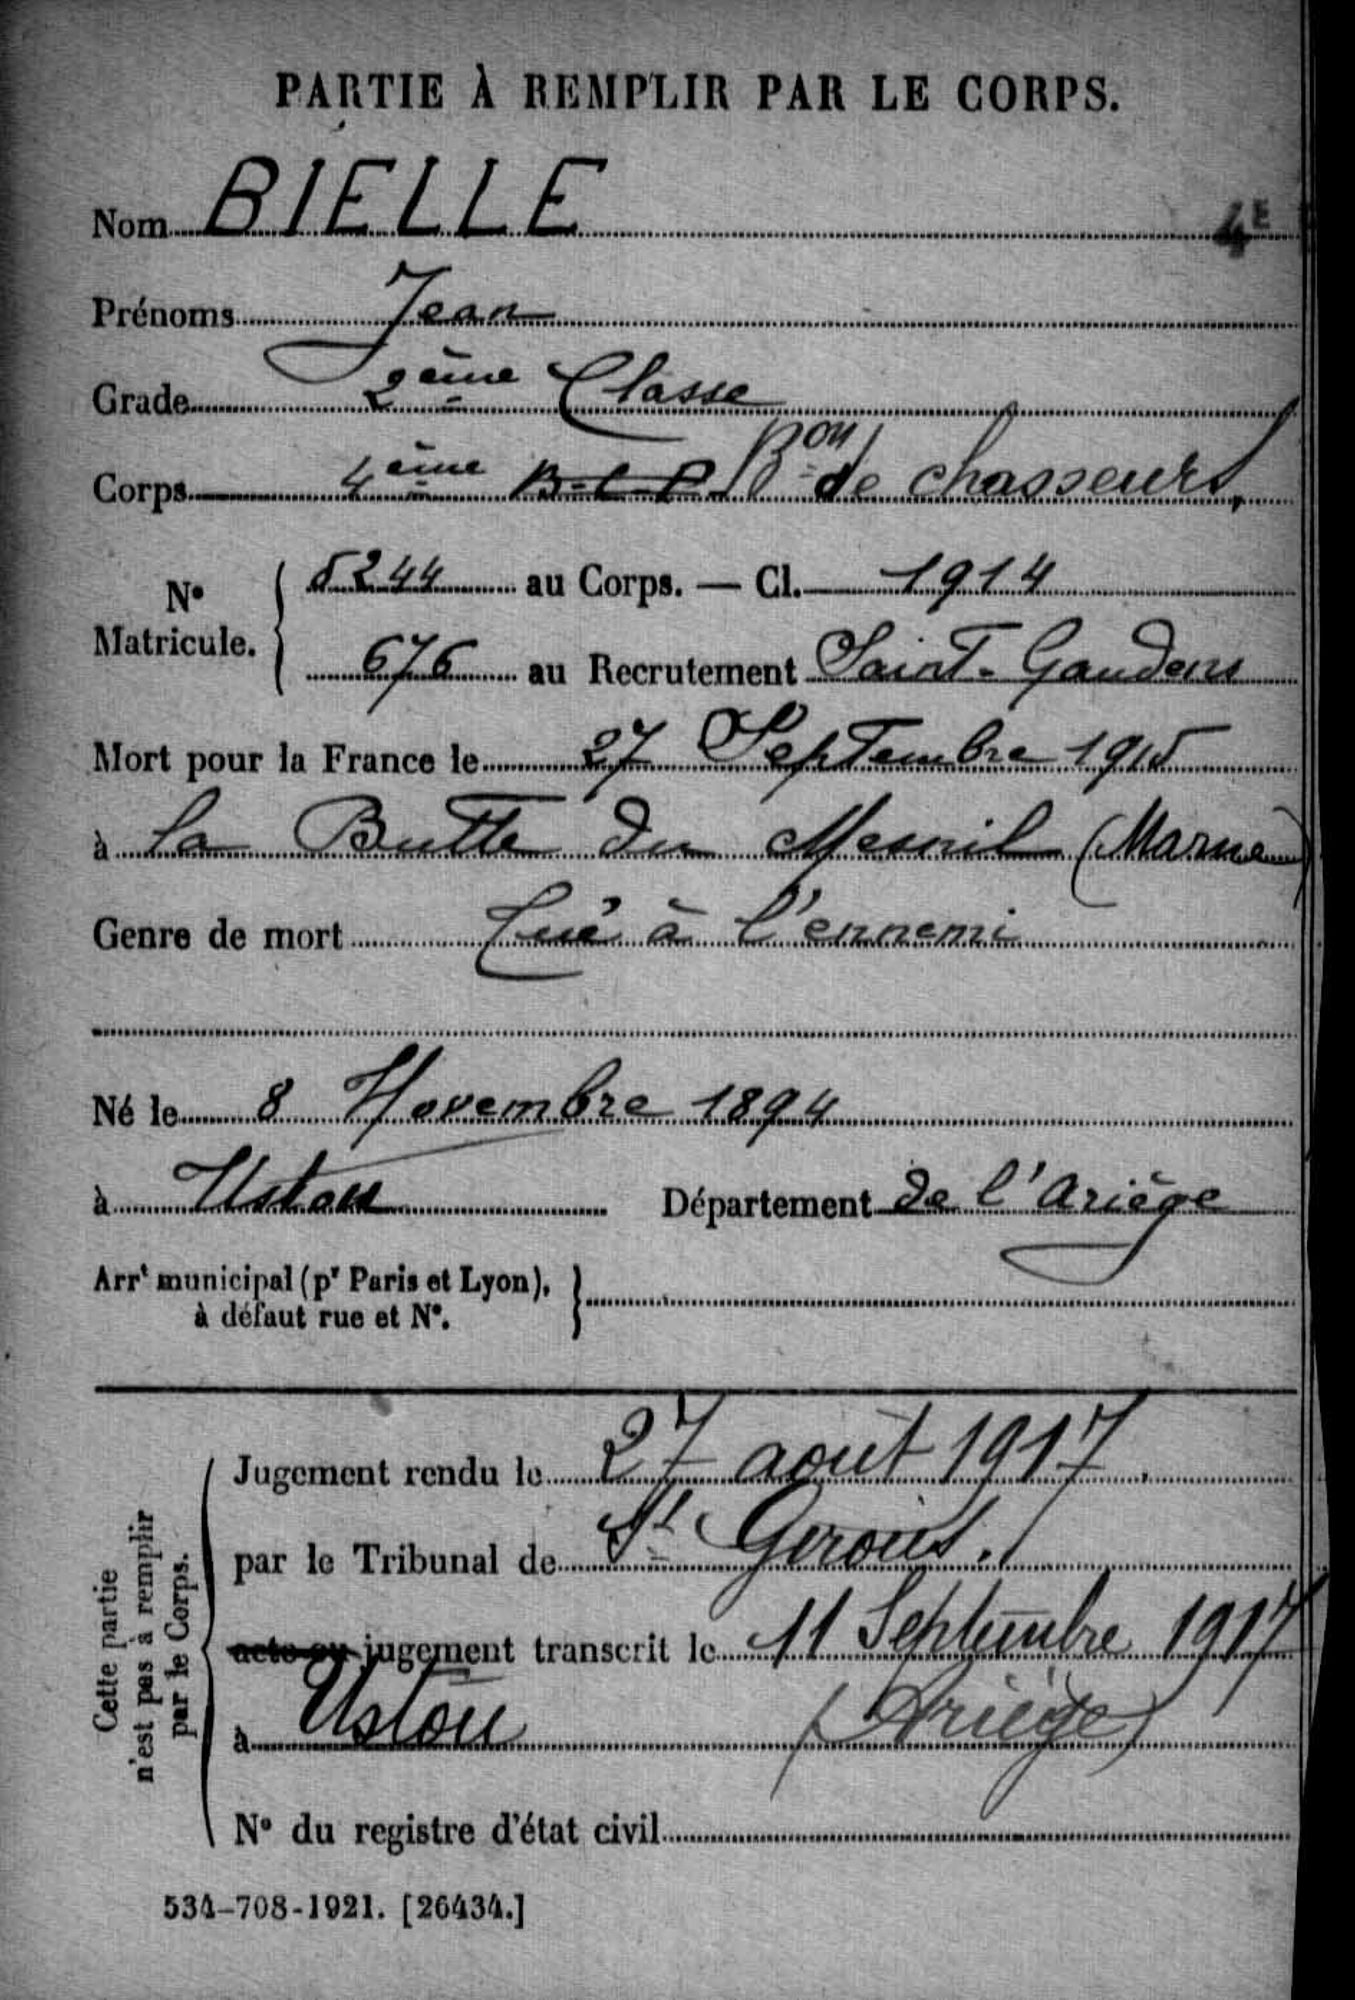 PARTIE À REMPLIR PAR LE CORPS.
Nom BIELLE 4E
Prénoms Jean
Grade 2ème Classe
Corps 4ème B.C.P. Bon de chasseurs
No Matricule. 5244 au Corps. — Cl. 1914
676 au Recrutement Saint-Gaudens
Mort pour la France le 27 Septembre 1915
à la Butte du Mesnil (Marne)
Genre de mort Tué à l'ennemi
Né le 8 Novembre 1894
à Ustou Département de l'Ariège
Arrt municipal (pr Paris et Lyon),
à défaut rue et No.
Cette partie
n'est pas à remplir
par le Corps.
Jugement rendu le 27 août 1917
par le Tribunal de St Girons.
acte ou jugement transcrit le 11 Septembre 1917
à Ustou (Ariège)
No du registre d'état civil
534-708-1921. [26434.]